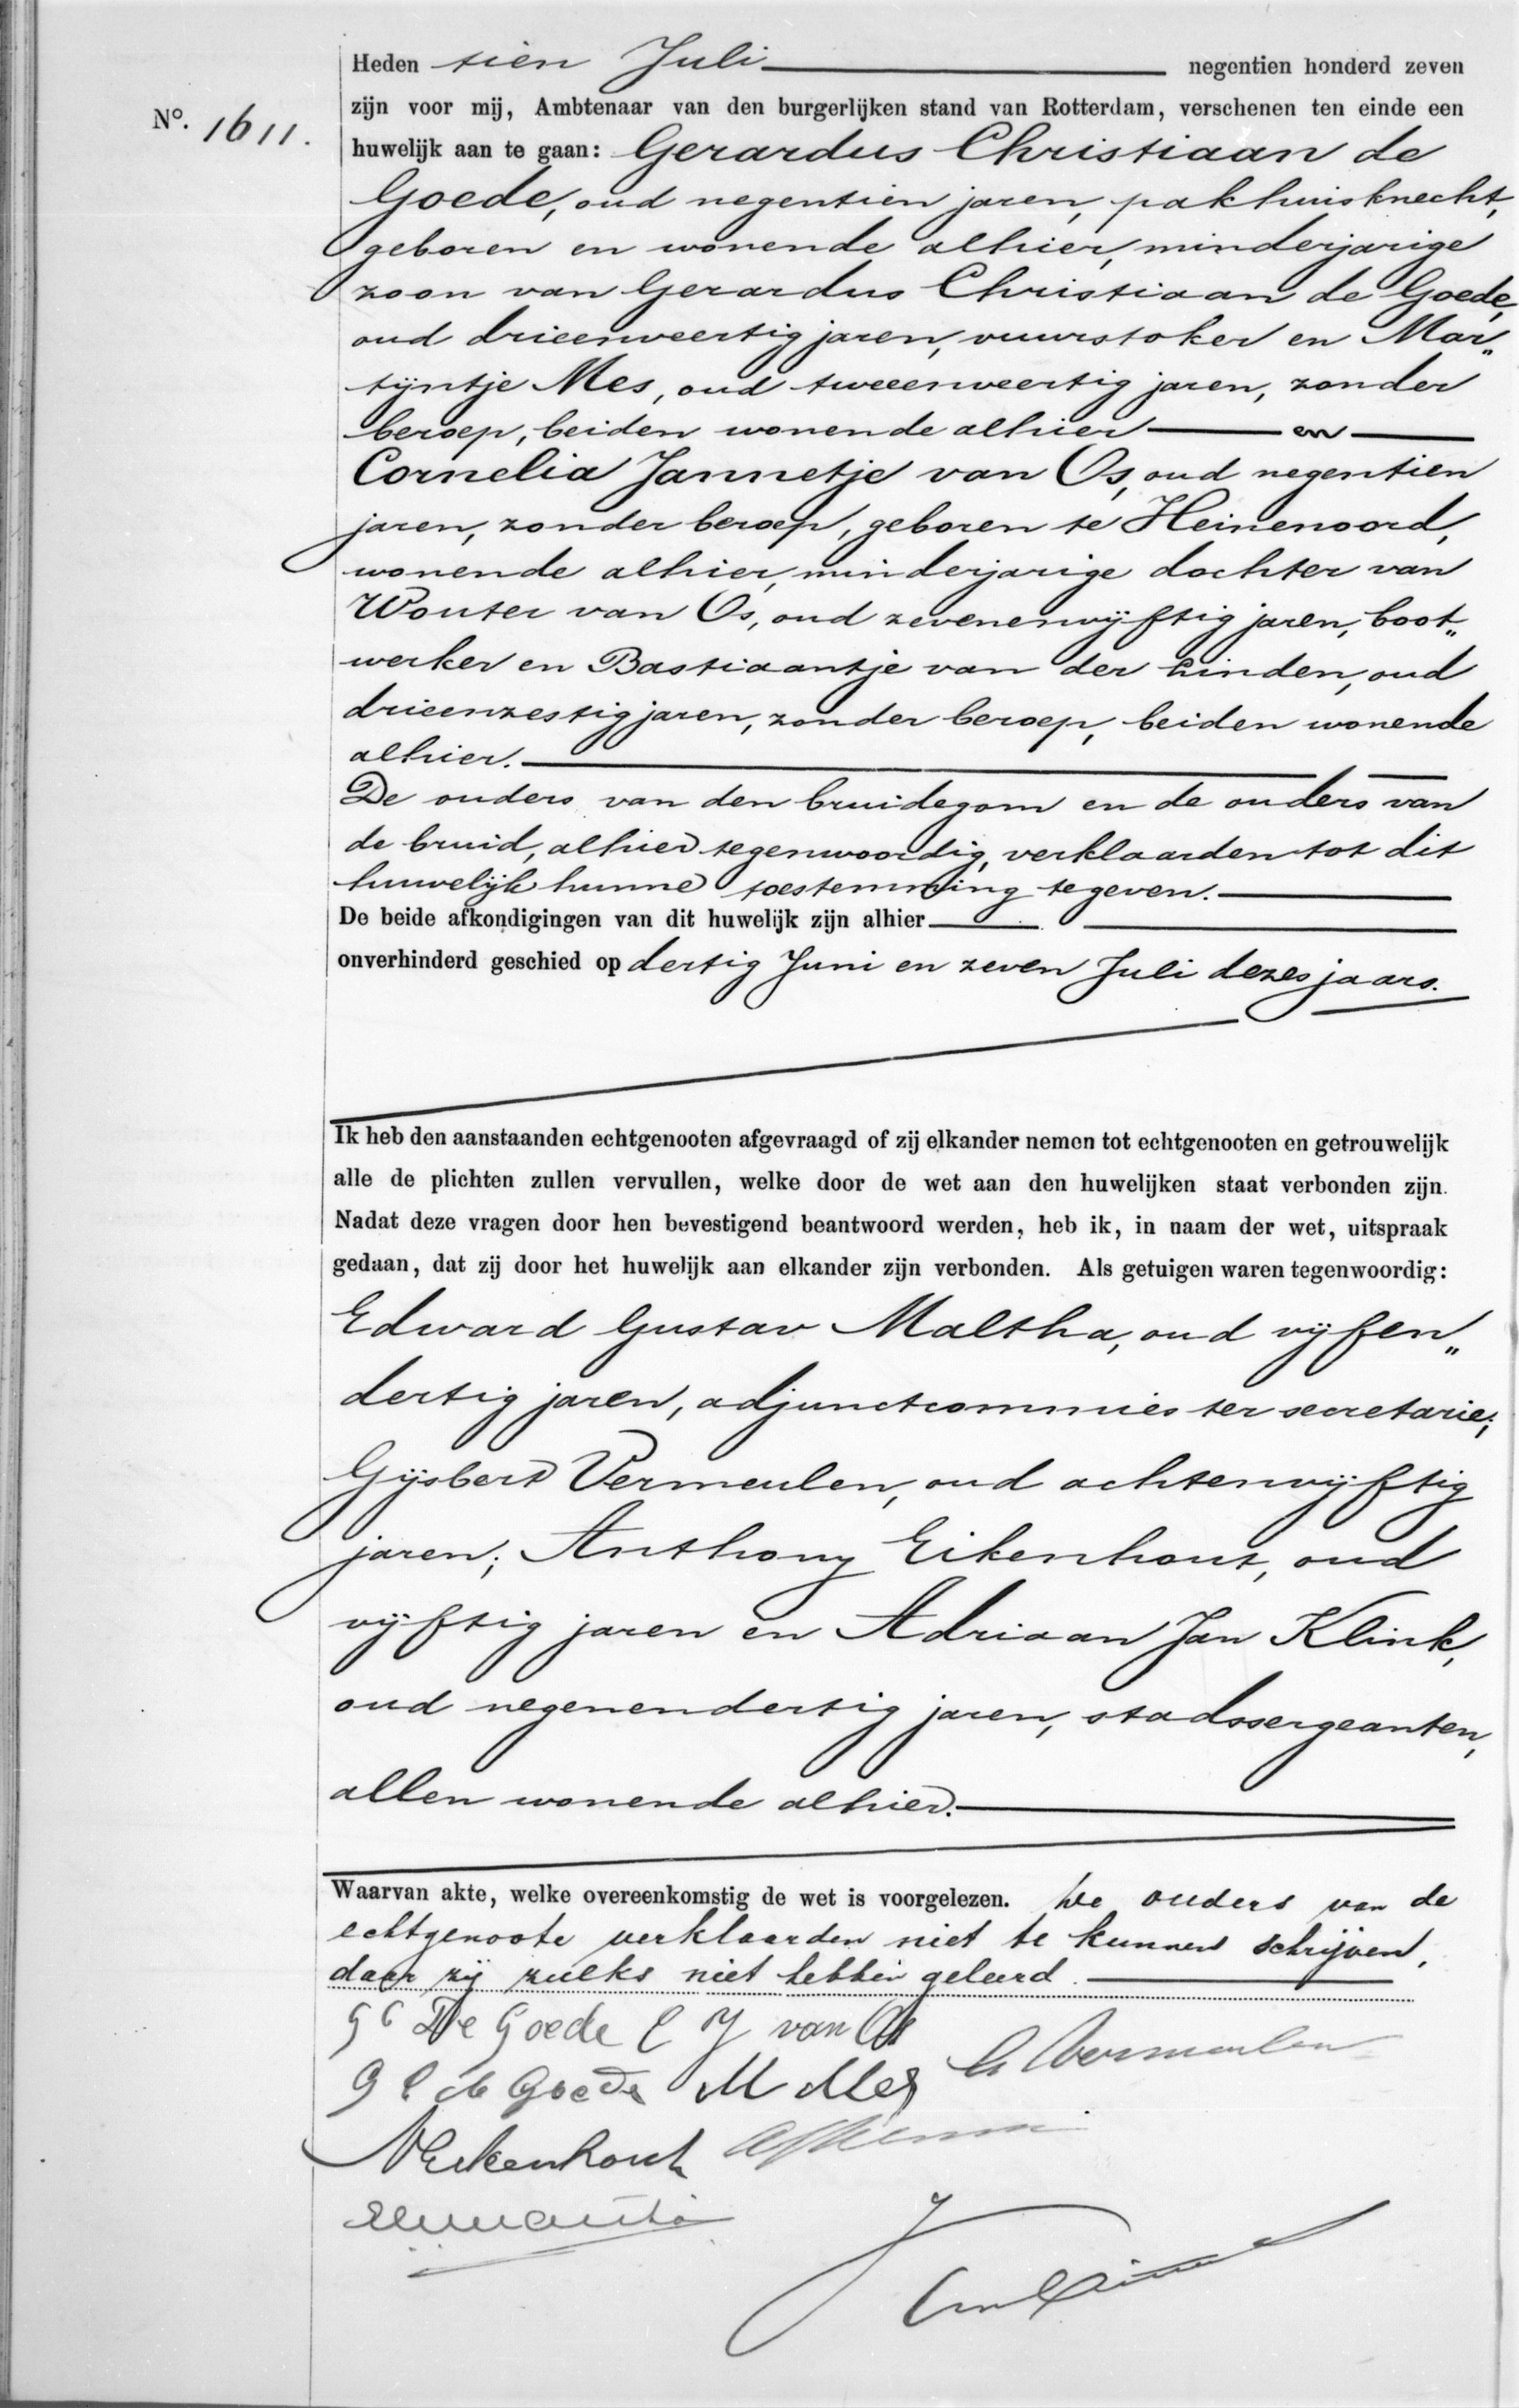 Heden tien Juli negentien honderd zeven
zijn voor mij, Ambtenaar van den burgerlijken stand van Rotterdam, verschenen ten einde een
No. 1611.
huwelijk aan te gaan: Gerardus Christiaan de
Goede, oud negentien jaren, pakhuisknecht,
geboren en wonende alhier, minderjarige
zoon van Gerardus Christiaan de Goede,
oud drieenveertig jaren, vuurstoker en Mar„
tijntje Mes, oud tweeenveertig jaren, zonder
beroep, beiden wonende alhier en
Cornelia Jannetje van Os, oud negentien
jaren, zonder beroep, geboren te Heinenoord,
wonende alhier, minderjarige dochter van
Wouter van Os, oud zevenenvijftig jaren, boot„
werker en Bastiaantje van der Linden, oud
drieenzestig jaren, zonder beroep, beiden wonende
alhier.
De ouders van den bruidegom en de ouders van
de bruid, alhier tegenwoordig, verklaarden tot dit
huwelijk hunne toestemming te geven.
De beide afkondigingen van dit huwelijk zijn alhier
onverhinderd geschied op dertig Juni en zeven Juli dezes jaars.
Ik heb den aanstaanden echtgenooten afgevraagd of zij elkander nemen tot echtgenooten en getrouwelijk
alle de plichten zullen vervullen, welke door de wet aan den huwelijken staat verbonden zijn.
Nadat deze vragen door hen bevestigend beantwoord werden, heb ik, in naam der wet, uitspraak
gedaan, dat zij door het huwelijk aan elkander zijn verbonden. Als getuigen waren tegenwoordig:
Edward Gustav Maltha, oud vijfen„
dertig jaren, adjunctcommies ter secretarie;
Gijsbert Vermeulen, oud achtenvijftig
jaren; Anthony Eikenhout, oud
vijftig jaren en Adriaan Jan Klink,
oud negenendertig jaren, stadssergeanten,
allen wonende alhier.
Waarvan akte, welke overeenkomstig de wet is voorgelezen. De ouders van de
echtgenoote verklaarden niet te kunnen schrijven,
daar zij zulks niet hebben geleerd.
G C De Goede C J van Os
G C de Goede M Mes G Vermeulen
A Eikenhout